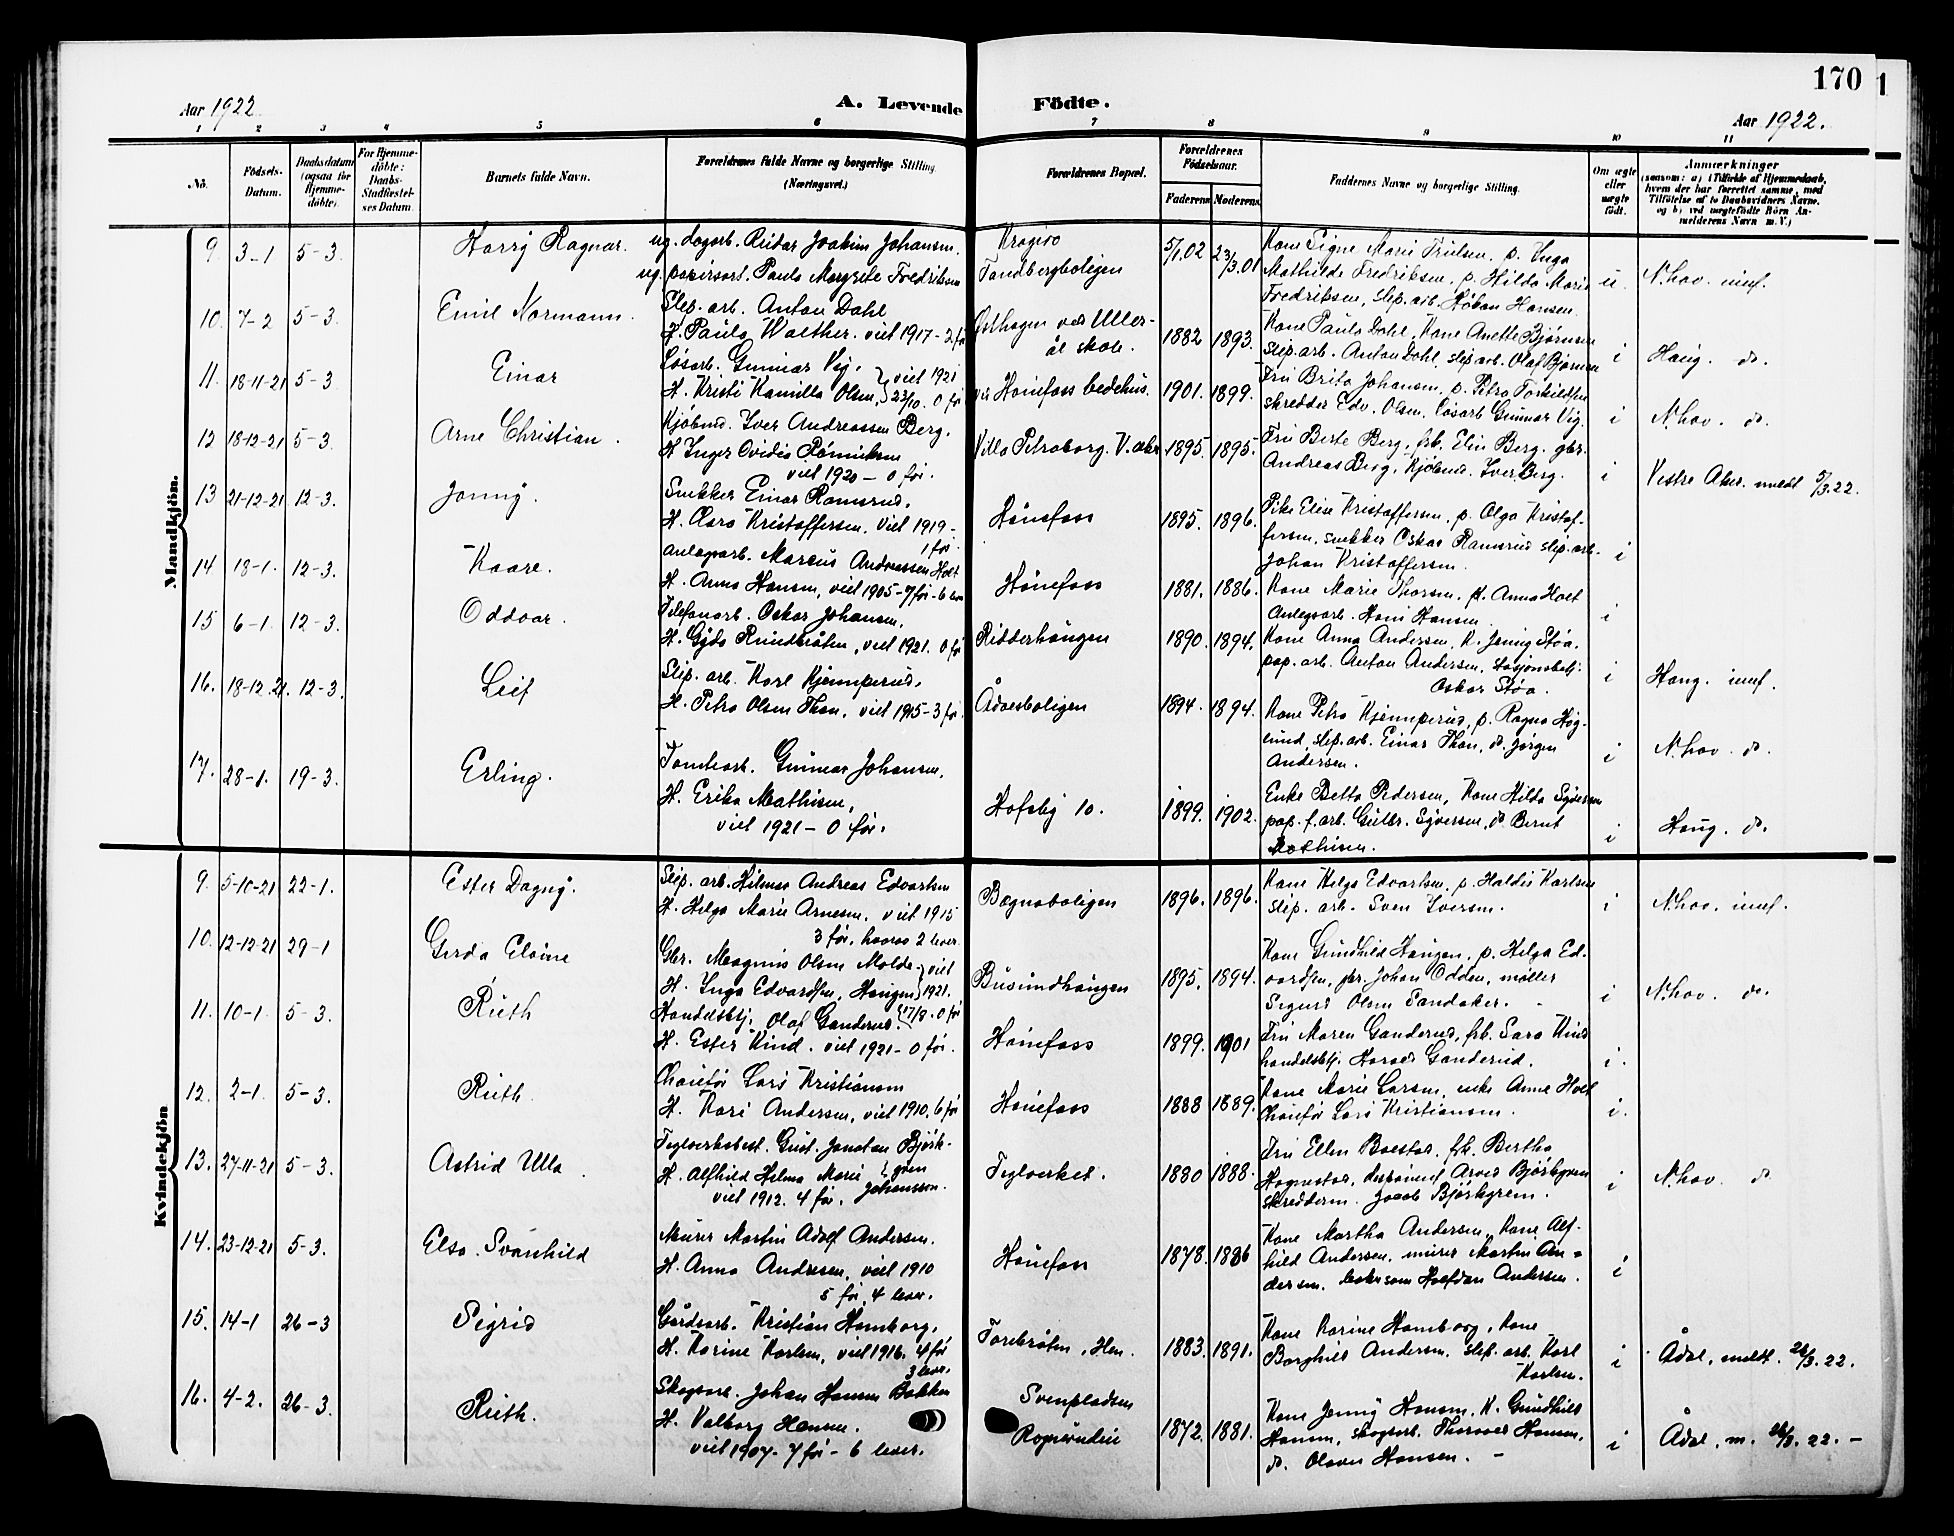 170
Aar 1922.
A. Levende
Födte.
Aar 1922.
1 2 3 4 5 6 7 8 9 10 11
No.
Födsels-
Datum.
Daabsdatum
(ogsaa for
Hjemme-
döbte).
For Hjemme-
döbte:
Daabs-
Stadfæstel-
ses Datum.
Barnets fulde Navn.
Forældrenes fulde Navne og borgerlige Stilling
(Næringsvei.)
Forældrenes Bopæl.
Forældrenes
Födselsaar.
Faderens Moderens
Faddernes Navne og borgerlige Stilling.
Om ægte
eller
uægte
født.
Anmærkninger
(saasom: a) i Tilfælde af Hjemmedaab,
hvem der har forrettet samme, med
Tilföielse af to Daabsvidners Navne,
og b) ved uægtefödte Börn An-
melderens Navn m. V.)
Mandkjön.
9 3-1 5-3. Harry Ragnar.
ug. dagarb. Reidar Joakim Johansen.
ug. papirarb. Paula Margrete Fredriksen
Tandbergboligen
5/1.02 23/3.01
Kone Signe Marie Trulsen, p. Inga
Mathilde Fredriksen, p. Hilda Marie
Fredriksen, slip. arb. Håkon Hansen.
u. N.hov. innf.
10. 7-2 5-3. Emil Normann.
Slip. arb. Anton Dahl
H. Paula Walther. viet 1917 - 2 før
Østhagen ved Uller-
ål skole.
1882 1893.
Kone Paula Dahl, Kone Anette Bjørnsen
slip. arb. Anton Dahl, slip. arb. Olaf Bjørnsen
i Haug. do.
11. 18-11-21 5-3. Einar
Løsarb. Gunnar Vig. viet 1921
H. Kristi Kamilla Olsen, 23/10. 0 før
ved Hønefoss bedehus.
1901. 1899.
Fru Brita Johansen, p. Petra Torkildsen
skredder Edv. Olsen, Løsarb Gunnar Vig.
i N.hov. do.
12 18-12-21 5-3. Arne Christian.
Kjøbmd. Iver Andreassen Berg.
H. Inger Ovidia Rønniksen
viet 1920 - 0 før.
Villa Petraborg. V. aker
1895. 1895.
Fru Berte Berg, frk. Elin Berg. gbr.
Andreas Berg, Kjøbmd. Iver Berg.
i Vestre Aker. meldt 5/3.22.
13 21-12-21 12-3. Jonny.
Snekker Einar Ramsrud,
H. Clara Kristoffersen. viet 1919 -
1 før.
Hønefoss
1895. 1896.
Pike Elise Kristoffersen, p. Olga Kristof-
fersen, snekker Oskar Ramsrud slip. arb.
Johan Kristoffersen.
i
14 18-1. 12-3. Kaare.
Anlegsarb. Marcus Andreassen Hoet
H. Anna Hansen, viet 1905 - 7 før - 6 lever
Hønefoss
1881. 1886.
Kone Marie Thorsen, p. Anna Hoet
Anlegsarb. Hans Hansen.
i
15 6-1. 12-3. Oddvar.
Telefonarb. Oskar Johansen,
H. Gyda Rundbråten, viet 1921. 0 før
Ridderhaugen
1890. 1894.
Kone Anna Andersen, K. Jenny Støa.
pap. arb. Anton Andersen, stasjonsbetj.
Oskar Støa.
i Haug. innf.
16. 18-12-21. 12-3. Leif
Slip. arb. Karl Kjemperud,
H. Petra Olsen Thon, viet 1915 - 3 før.
Ådalsboligen
1894. 1894.
Kone Petra Kjemperud, p. Ragna Høg-
lund, slip. arb. Einar Thon, do. Jørgen
Andersen.
i N.hov. do.
17. 28-1. 19-3. Erling.
Tomtearb. Gunnar Johansen,
H. Erika Mathisen,
viet 1921 - 0 før.
Hofsby 10.
1899. 1902.
Enke Betta Pedersen, Kone Hilda Syversen
pap. f. arb. Gulbr. Syversen, do. Bernt
Mathisen.
i Haug. do.
Kvindekjön
9. 5-10-21 22-1. Ester Dagny.
Slip. arb. Hilmar Andreas Edvartsen
H. Helga Marie Arnesen. viet 1915
3 før, hvorav 2 lever.
Bægnaboligen
1896. 1896.
Kone Helga Edvartsen, p. Haldis Karlsen
slip. arb. Sven Iversen.
i N.hov. innf.
10. 12-12-21 29-1 Gerda Elaine
Gbr. Magnus Olsen Molde viet
H. Inga Edvardsen, Haugen 1921.
17/8. 0 før
Busundhaugen
1895. 1894.
Kone Gunhild Haugen, p. Helga Ed-
vardsen, gbr. Johan Odden, møller
Sigurd Olsen Sandaker. -
i N.hov. do.
11. 10-1. 5-3. Ruth
Handelsbtj. Olaf Ganderud.
H. Ester Kind. viet 1921 - 0 før.
Hønefoss
1899. 1901
Fru Maren Ganderud, frk. Sara Kind
handelsbtj. Harald Ganderud.
i.
12. 2-1. 5-3. Ruth.
Chaufør Lars Kristiansen
H. Kari Andersen, viet 1910, 6 før
Hønefoss
1888 1889.
Kone Marie Larsen, enke Anne Hoet
Chaufør Lars Kristiansen.
i.
13. 27-11-21 5-3. Astrid Ulla.
Teglverksbest. Gust. Jonatan Björk-
gren
H. Alfhild Helma Marie Johansson.
viet 1912. 4 før.
Teglverket.
1880 1888.
Fru Ellen Baestad, frk. Bertha
Hognestad, disponent Arvid Björkgren
skredderm. Jacob Björkgren.
i N.hov. do
14. 23-12-21 5-3. Elsa Svanhild
Murer Martin Adolf Andersen.
H. Anna Andresen, viet 1910
5 før, 4 lever.
Hønefoss
1878. 1886
Kone Martha Andersen, Kone Alf-
hild Andersen, murer Martin An-
dersen, Halfdan Andersen.
i
15. 14-1 26-3 Sigrid
Gårdsarb. Kristian Hamborg,
H. Karine Karlsen, viet 1916. 4 før
3 lever.
Torebråten, Hen.
1883. 1891.
Kone Karine Hamborg, Kone
Borghild Andersen, slip. arb. Karl
Karlsen.
i Ådal, meldt. 26/3.22.
16. 4-2. 26-3. Ruth.
Skogsarb. Johan Hansen Bakken
H. Valborg Hansen.
viet 1907 - 7 før - 6 lever.
Svenpladsen
1872. 1881.
Kone Jenny Hansen, K. Gunhild
Hansen, skogsarb. Thorvald Hansen,
do. Olaves Hansen. -
i Ådal, m. 26/3.22. -